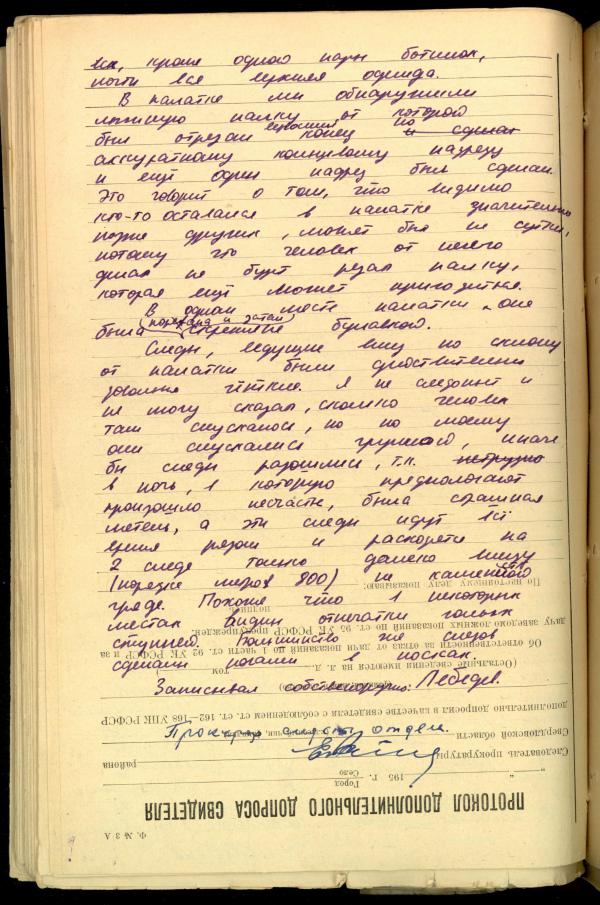 все, кроме одною пары ботинок,
почти вся верхняя одежда.
В палатке мы обнаружили
лыжную палку от которой
был отрезан верхний конец по и сделан
аккуратному концевому надрезу
и ещё один надрез был сделан.
Это говорит о том, что видимо
кто-то оставался в палатке значительно
позже других, может был не сутки,
потому что человек от нечего
делал не будет резал палку,
которая ещё может пригодиться.
В одном месте палатки оне
была (порвана и затем) скреплена булавкой.
Следы, ведущие вниз по склону
от палатки были действительно
довольно чёткие. Я не следопыт и
не могу сказал, сколько человек
там спускалось, но по моему
они спускались группой, иначе
бы следы разошлись, т.к. нетрудно
в ночь, в которую предполагают
произошло несчастье, была страшная
метель, а эти следы идут всё
время рядом и расходятся на
2 следе только далеко внизу
(порядке метров 800) на каменистой
гряде. Похоже что в некоторых
местах видны отпечатки голых
ступней. Большинство же следов
сделаны ногами в носках.
Записывал собственноручно: Лебедев.
Прокурор следств отдела
ПРОТОКОЛ ДОПОЛНИТЕЛЬНОГО ДОПРОСА СВИДЕТЕЛЯ
Ф. № 3 А
195 г.
Город
Село
Следователь прокуратуры района
Свердловской области
дополнительно допросил в качестве свидетеля с соблюдением ст. ст. 162—168 УПК РСФСР
(Остальные сведения имеются на л. д. том )
Об ответственности за отказ от дачи показаний по 1 части ст. 92 УК РСФСР и за
дачу заведомо ложных показаний по ст. 95 УК РСФСР предупрежден.
подпись
По настоящему делу показываю: